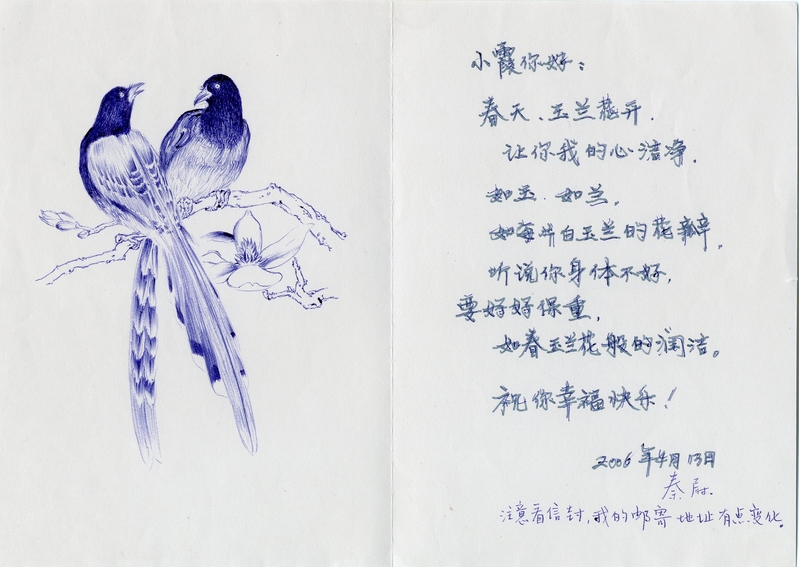 小霞你好：
春天、玉兰花开.
让你我的心洁净.
如玉、如兰,
如每片白玉兰的花瓣,
听说你身体不好,
要好好保重,
如春玉兰花般的润洁。
祝你幸福快乐！
2006年4月13日
秦尉.
注意看信封,我的邮寄地址有点变化。